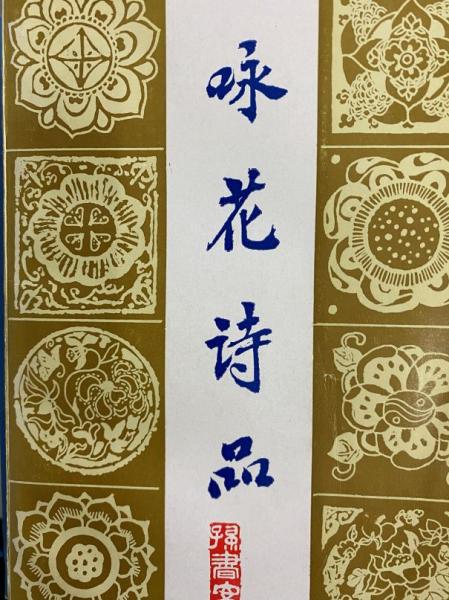 咏花诗品
孙书安